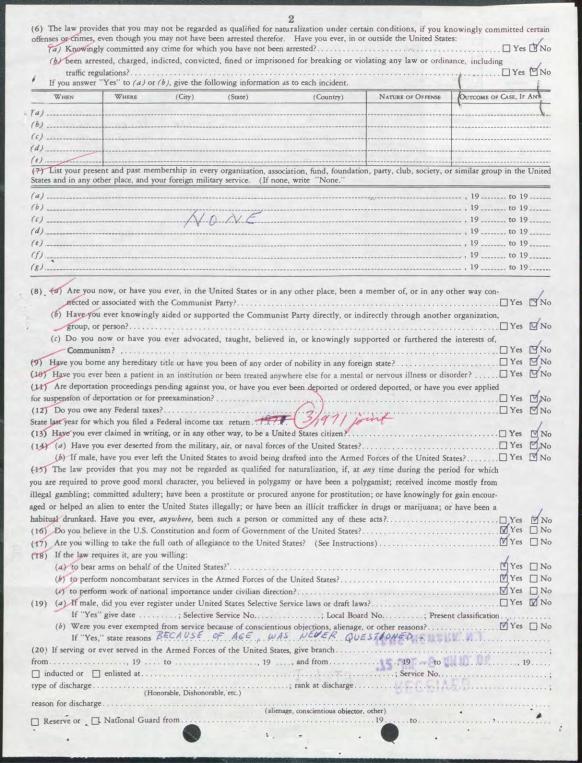 2
(6) The law provides that you may not be regarded as qualified for naturalization under certain conditions, if you knowingly committed certain
offenses or crimes, even though you may not have been arrested therefor. Have you ever, in or outside the United States:
(a) Knowingly committed any crime for which you have not been arrested? ☐ Yes ☑ No
(b) been arrested, charged, indicted, convicted, fined or imprisoned for breaking or violating any law or ordinance, including
traffic regulations? ☐ Yes ☑ No
If you answer "Yes" to (a) or (b), give the following information as to each incident.
WHEN WHERE (City) (State) (Country) NATURE OF OFFENSE OUTCOME OF CASE, IF ANY
(a)
(b)
(c)
(d)
(e)
(7) List your present and past membership in every organization, association, fund, foundation, party, club, society, or similar group in the United
States and in any other place, and your foreign military service. (If none, write "None."
(a) , 19 to 19
(b) , 19 to 19
(c) NONE , 19 to 19
(d) , 19 to 19
(e) , 19 to 19
(f) , 19 to 19
(g) , 19 to 19
(8) (a) Are you now, or have you ever, in the United States or in any other place, been a member of, or in any other way con-
nected or associated with the Communist Party? ☐ Yes ☑ No
(b) Have you ever knowingly aided or supported the Communist Party directly, or indirectly through another organization,
group, or person? ☐ Yes ☑ No
(c) Do you now or have you ever advocated, taught, believed in, or knowingly supported or furthered the interests of,
Communism? ☐ Yes ☑ No
(9) Have you borne any hereditary title or have you been of any order of nobility in any foreign state? ☐ Yes ☑ No
(10) Have you ever been a patient in an institution or been treated anywhere else for a mental or nervous illness or disorder? ☐ Yes ☑ No
(11) Are deportation proceedings pending against you, or have you ever been deported or ordered deported, or have you ever applied
for suspension of deportation or for preexamination? ☐ Yes ☑ No
(12) Do you owe any Federal taxes? ☐ Yes ☑ No
State last year for which you filed a Federal income tax return 3 1971 joint
(13) Have you ever claimed in writing, or in any other way, to be a United States citizen? ☐ Yes ☑ No
(14) (a) Have you ever deserted from the military, air, or naval forces of the United States? ☐ Yes ☑ No
(b) If male, have you ever left the United States to avoid being drafted into the Armed Forces of the United States? ☐ Yes ☑ No
(15) The law provides that you may not be regarded as qualified for naturalization, if, at any time during the period for which
you are required to prove good moral character, you believed in polygamy or have been a polygamist; received income mostly from
illegal gambling; committed adultery; have been a prostitute or procured anyone for prostitution; or have knowingly for gain encour-
aged or helped an alien to enter the United States illegally; or have been an illicit trafficker in drugs or marijuana; or have been a
habitual drunkard. Have you ever, anywhere, been such a person or committed any of these acts? ☐ Yes ☑ No
(16) Do you believe in the U.S. Constitution and form of Government of the United States? ☑ Yes ☐ No
(17) Are you willing to take the full oath of allegiance to the United States? (See Instructions) ☑ Yes ☐ No
(18) If the law requires it, are you willing:
(a) to bear arms on behalf of the United States? ☑ Yes ☐ No
(b) to perform noncombatant services in the Armed Forces of the United States? ☑ Yes ☐ No
(c) to perform work of national importance under civilian direction? ☑ Yes ☐ No
(19) (a) If male, did you ever register under United States Selective Service laws or draft laws? ☐ Yes ☑ No
If "Yes" give date ; Selective Service No. ; Local Board No. ; Present classification
(b) Were you ever exempted from service because of conscientious objections, alienage, or other reasons? ☑ Yes ☐ No
If "Yes," state reasons BECAUSE OF AGE, WAS NEVER QUESTIONED
(20) If serving or ever served in the Armed Forces of the United States, give branch
from , 19 to , 19 , and from , 19 to , 19
☐ inducted or ☐ enlisted at ; Service No.
type of discharge ; rank at discharge
(Honorable, Dishonorable, etc.)
reason for discharge
(alienage, conscientious objector, other)
☐ Reserve or ☐ National Guard from 19 to
RECEIVED